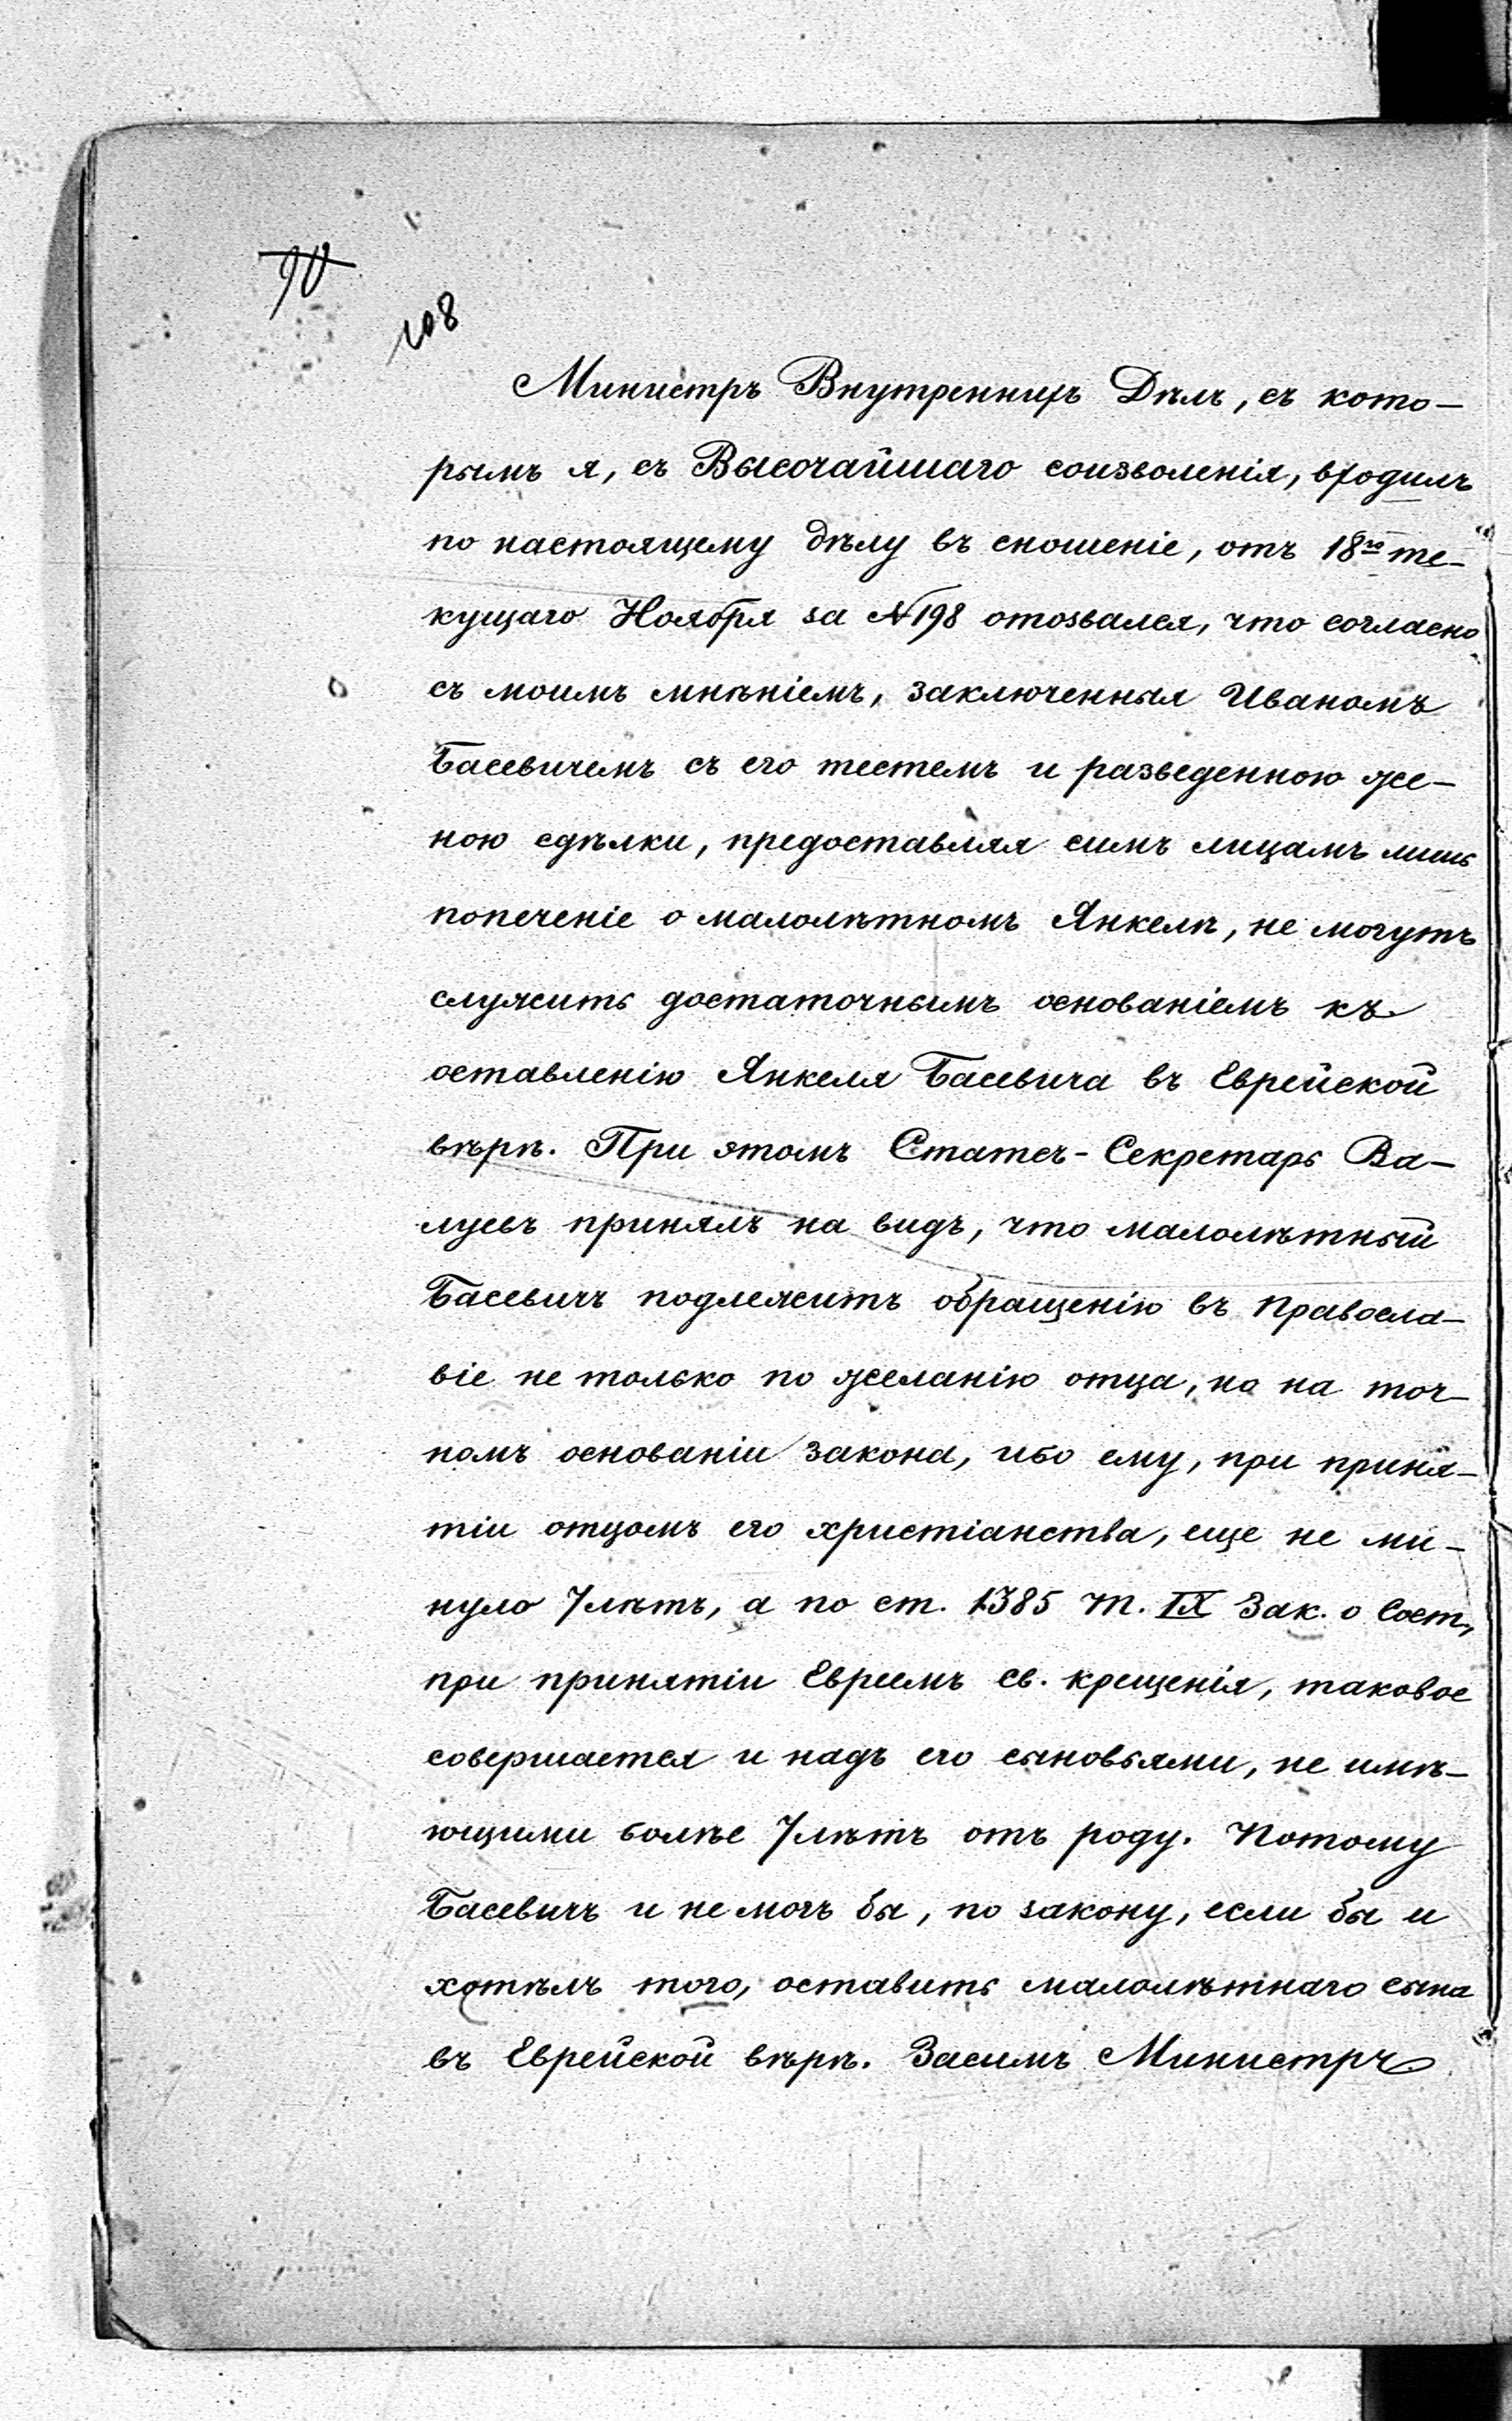 90
108
Министръ Внутреннихъ Дѣлъ, съ кото-
рымъ я, съ Высочайшаго соизволенія, входилъ
по настоящему дѣлу въ сношеніе, отъ 18го те-
кущаго Ноября за №198 отозвался, что согласно
съ моимъ мнѣніемъ, заключенныя Иваномъ
Басевичемъ съ его тестемъ и разведенною же-
ною сдѣлки, предоставляя симъ лицамъ лишь
попеченіе о малолѣтномъ Янкелѣ, не могутъ
служить достаточнымъ основаніемъ къ
оставленію Янкеля Басевича въ Еврейской
вѣрѣ. При этомъ Статсъ-Секретарь Ва-
луевъ принялъ на видъ, что малолѣтный
Басевичъ подлежитъ обращенію въ Правосла-
віе не только по желанію отца, но на точ-
номъ основаніи закона, ибо ему, при приня-
тіи отцомъ его христіанства, еще не ми-
нуло 7 лѣтъ, а по ст. 1385 т. IX Зак. о Сост.,
при принятіи Евреемъ св. крещенія, таковое
совершается и надъ его сыновьями, не имѣ-
ющими болѣе 7 лѣтъ отъ роду. Потому
Басевичъ и не могъ бы, по закону, если бы и
хотѣлъ того, оставить малолѣтнаго сына
въ Еврейской вѣрѣ. Засимъ Министръ